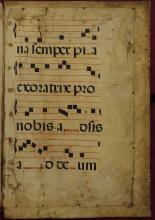 na semper pi. a
exoratrix pro
nobis a dsis
a d de um